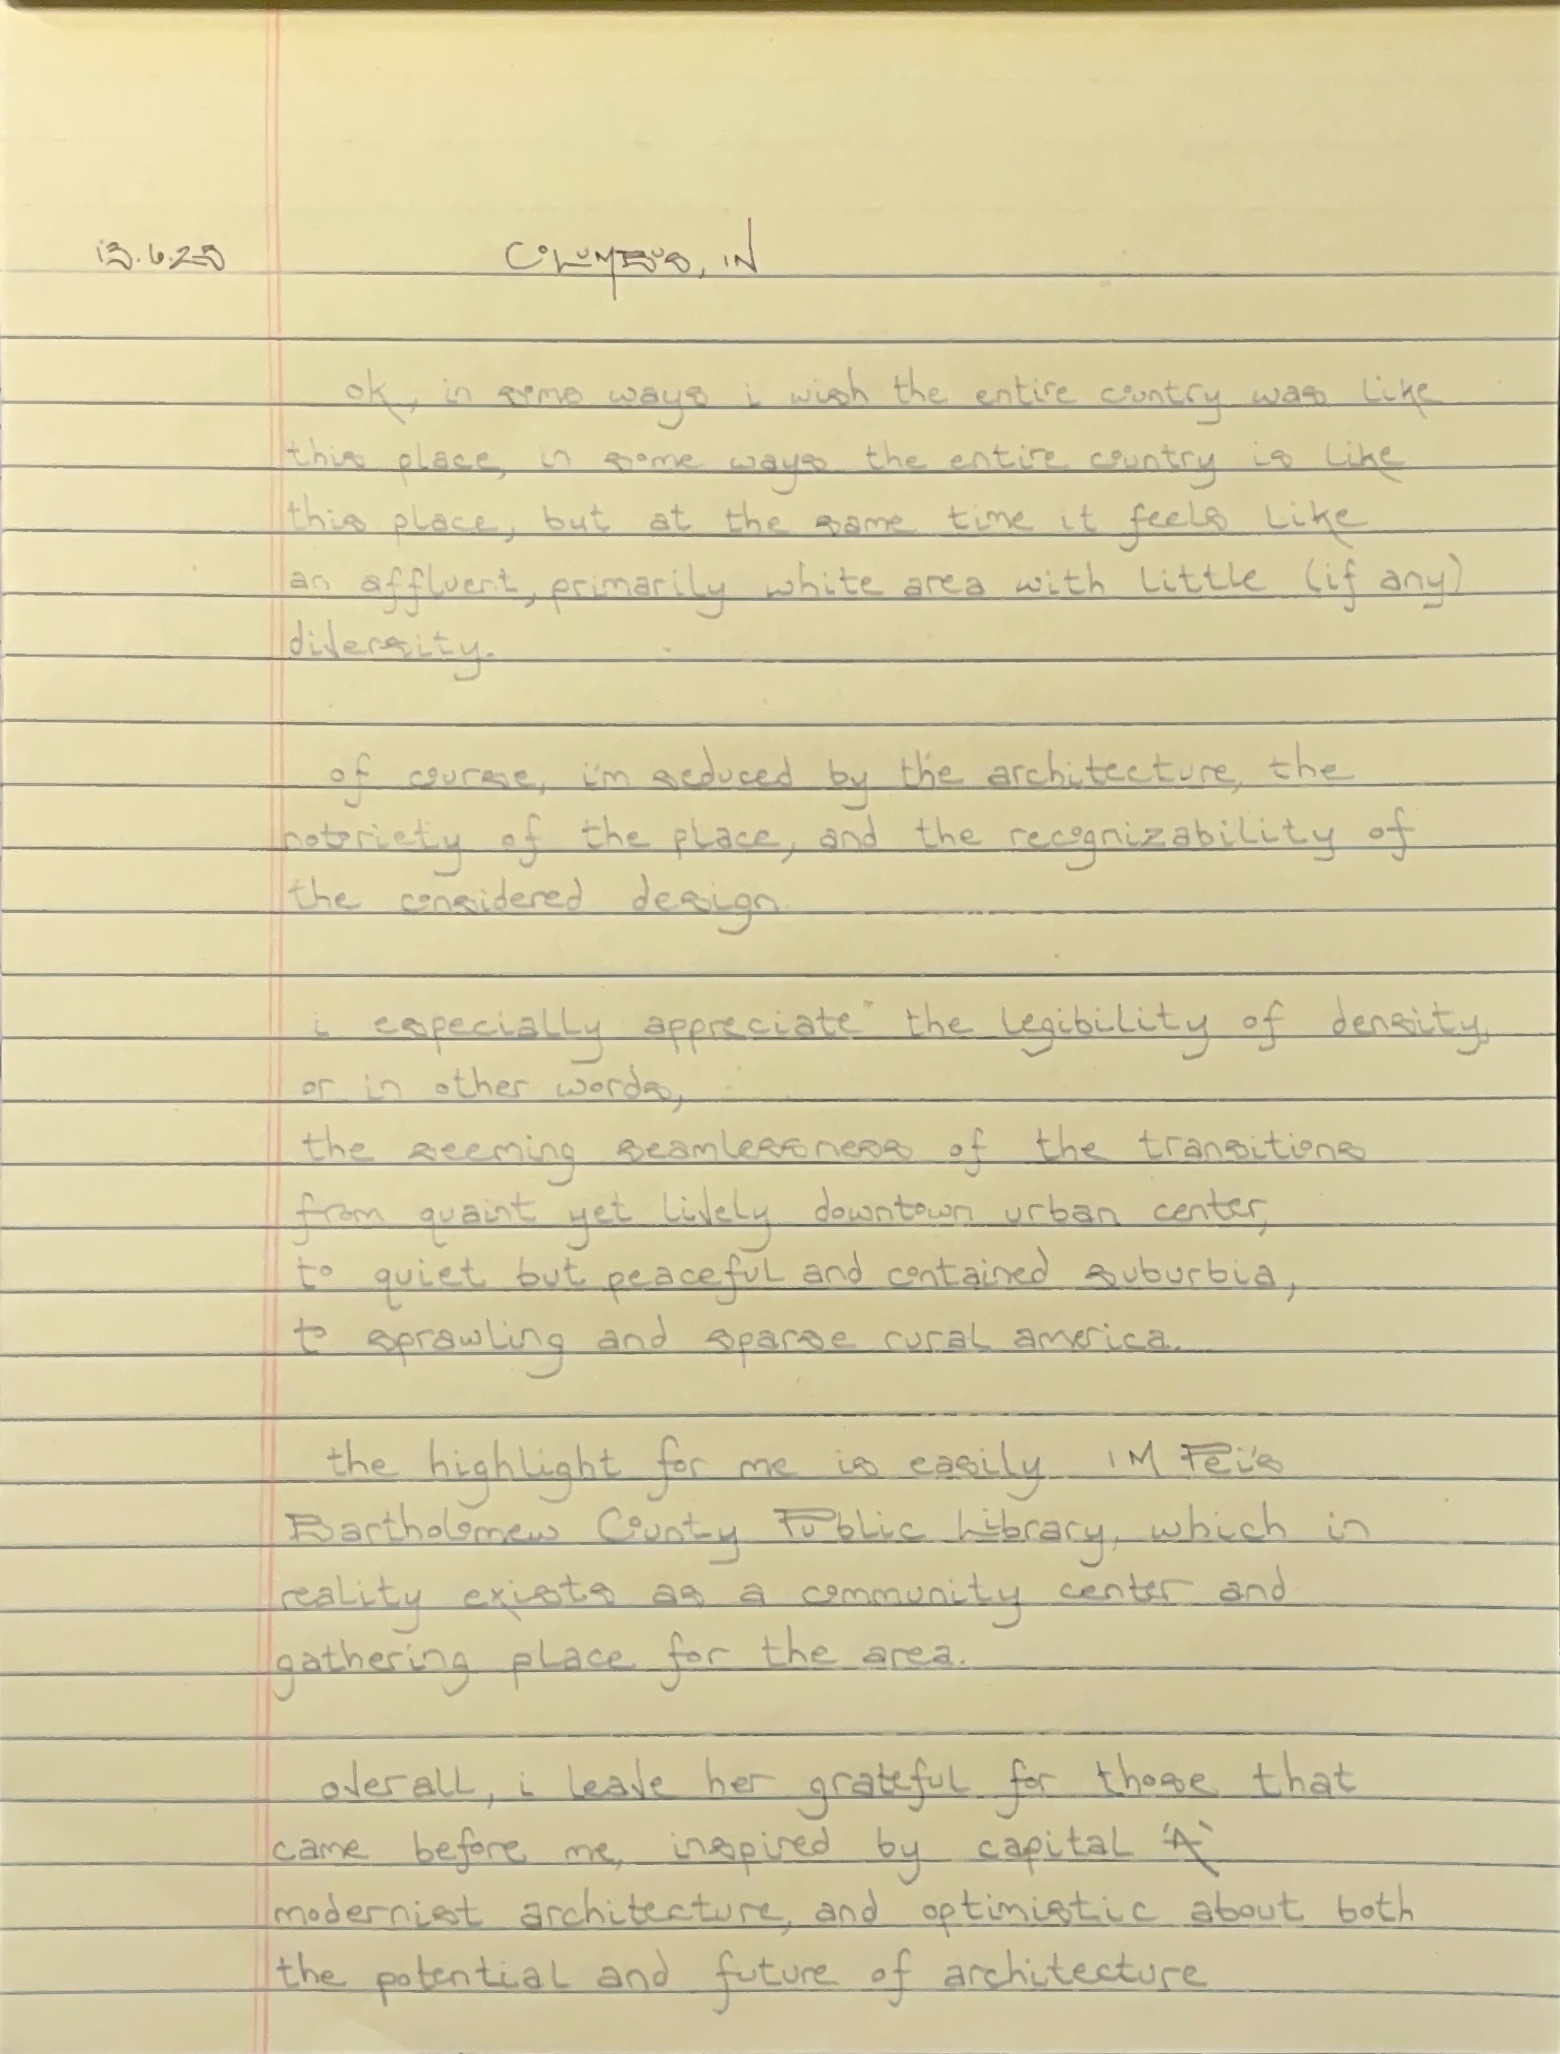 13.6.23 COLUMBUS, IN
ok, in some ways i wish the entire country was like
this place, in some ways the entire country is like
this place, but at the same time it feels like
an affluent, primarily white area with little (if any)
diversity.
of course, i'm seduced by the architecture, the
notoriety of the place, and the recognizability of
the considered design.
i especially appreciate the legibility of density,
or in other words,
the seeming seamlessness of the transitions
from quaint yet lively downtown urban center,
to quiet but peaceful and contained suburbia,
to sprawling and sparse rural america.
the highlight for me is easily IM Pei's
Bartholomew County Public Library, which in
reality exists as a community center and
gathering place for the area.
overall, i leave her grateful for those that
came before me, inspired by capital 'A'
modernist architecture, and optimistic about both
the potential and future of architecture